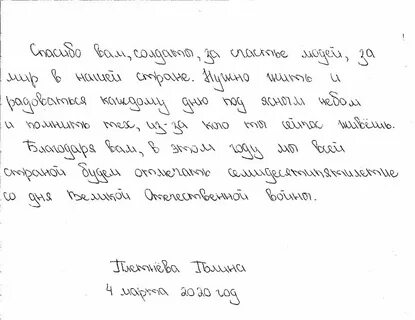 Спасибо вам, солдаты, за счастье людей, за
мир в нашей стране. Нужно жить и
радоваться каждому дню под ясным небом
и помнить тех, из-за кого ты сейчас живёшь.
Благодаря вам, в этом году мы всей
страной будем отмечать семидесятипятилетие
со дня Великой Отечественной войны.
Плетнёва Полина
4 марта 2020 год